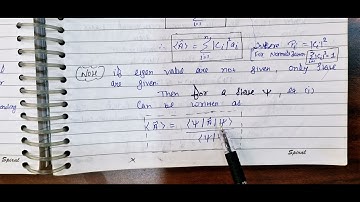 i=1
∴ ⟨Â⟩ = Σ |Ci|² ai where Pi = |Ci|²
i=1 For Normalized Σ|Ci|² = 1
Note if eigen value are not given, only state
are given.
Then for a state Ψ, eq (i)
Can be written as
⟨Â⟩ = ⟨Ψ|Â|Ψ⟩
⟨Ψ|
Spiral
Spiral